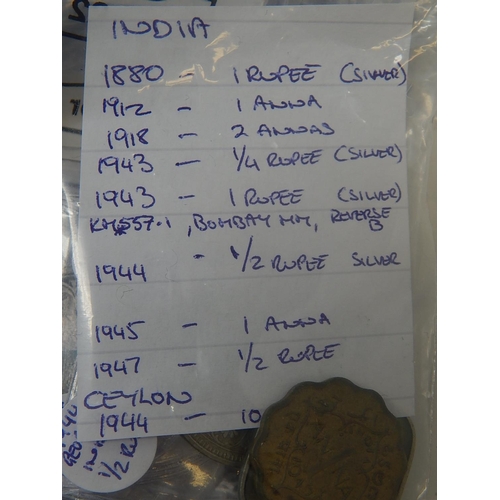 INDIA
1880 - 1 RUPEE (SILVER)
1912 - 1 ANNA
1918 - 2 ANNAS
1943 - 1/4 RUPEE (SILVER)
1943 - 1 RUPEE (SILVER)
KM557.1, BOMBAY MM, REVERSE B
1944 - 1/2 RUPEE SILVER
1945 - 1 ANNA
1947 - 1/2 RUPEE
CEYLON
1944 - 10
GEO
IND
1/2 RU